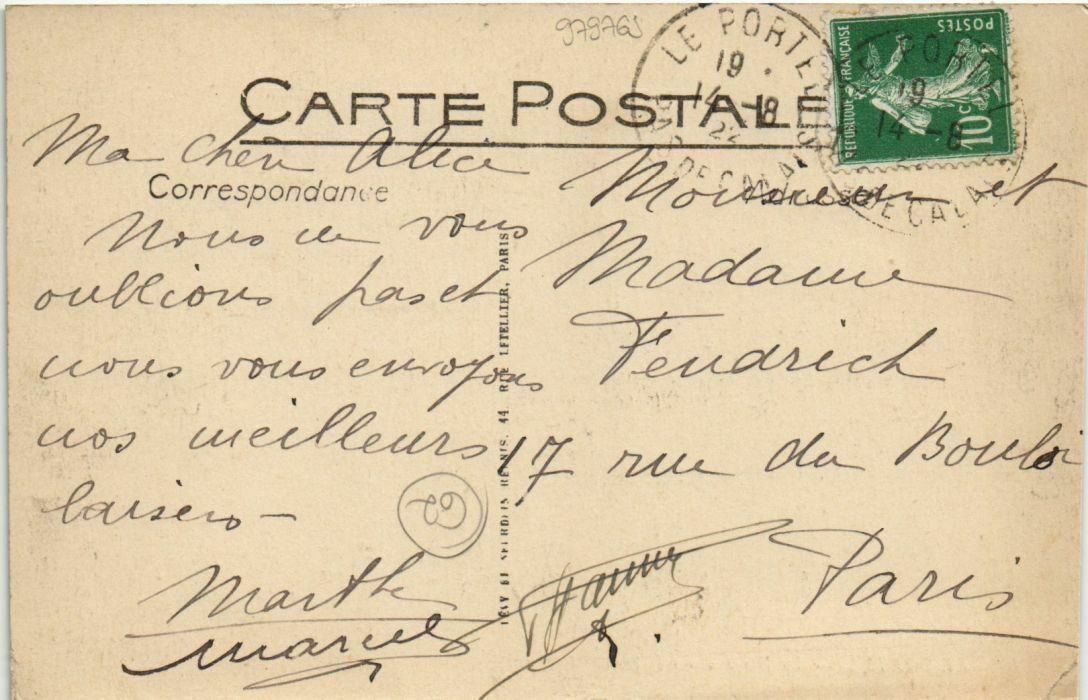 979765
LE PORTEL
19
14 - 8
22
PAS DE CALAIS
POSTES
REPUBLIQUE FRANÇAISE
10 c.
LE PORTEL
19
14 - 8
PAS DE CALAIS
CARTE POSTALE
Correspondance
Adresse
Ma chère Alice
Nous ne vous
oublions pas et
nous vous envoyons
nos meilleurs
baisers -
Marthe
Marcel
62
LEVY ET NEURDEIN REUNIS, 44, RUE LETELLIER, PARIS
Monsieur et
Madame
Fendrich
17 rue du Bouloi
Paris